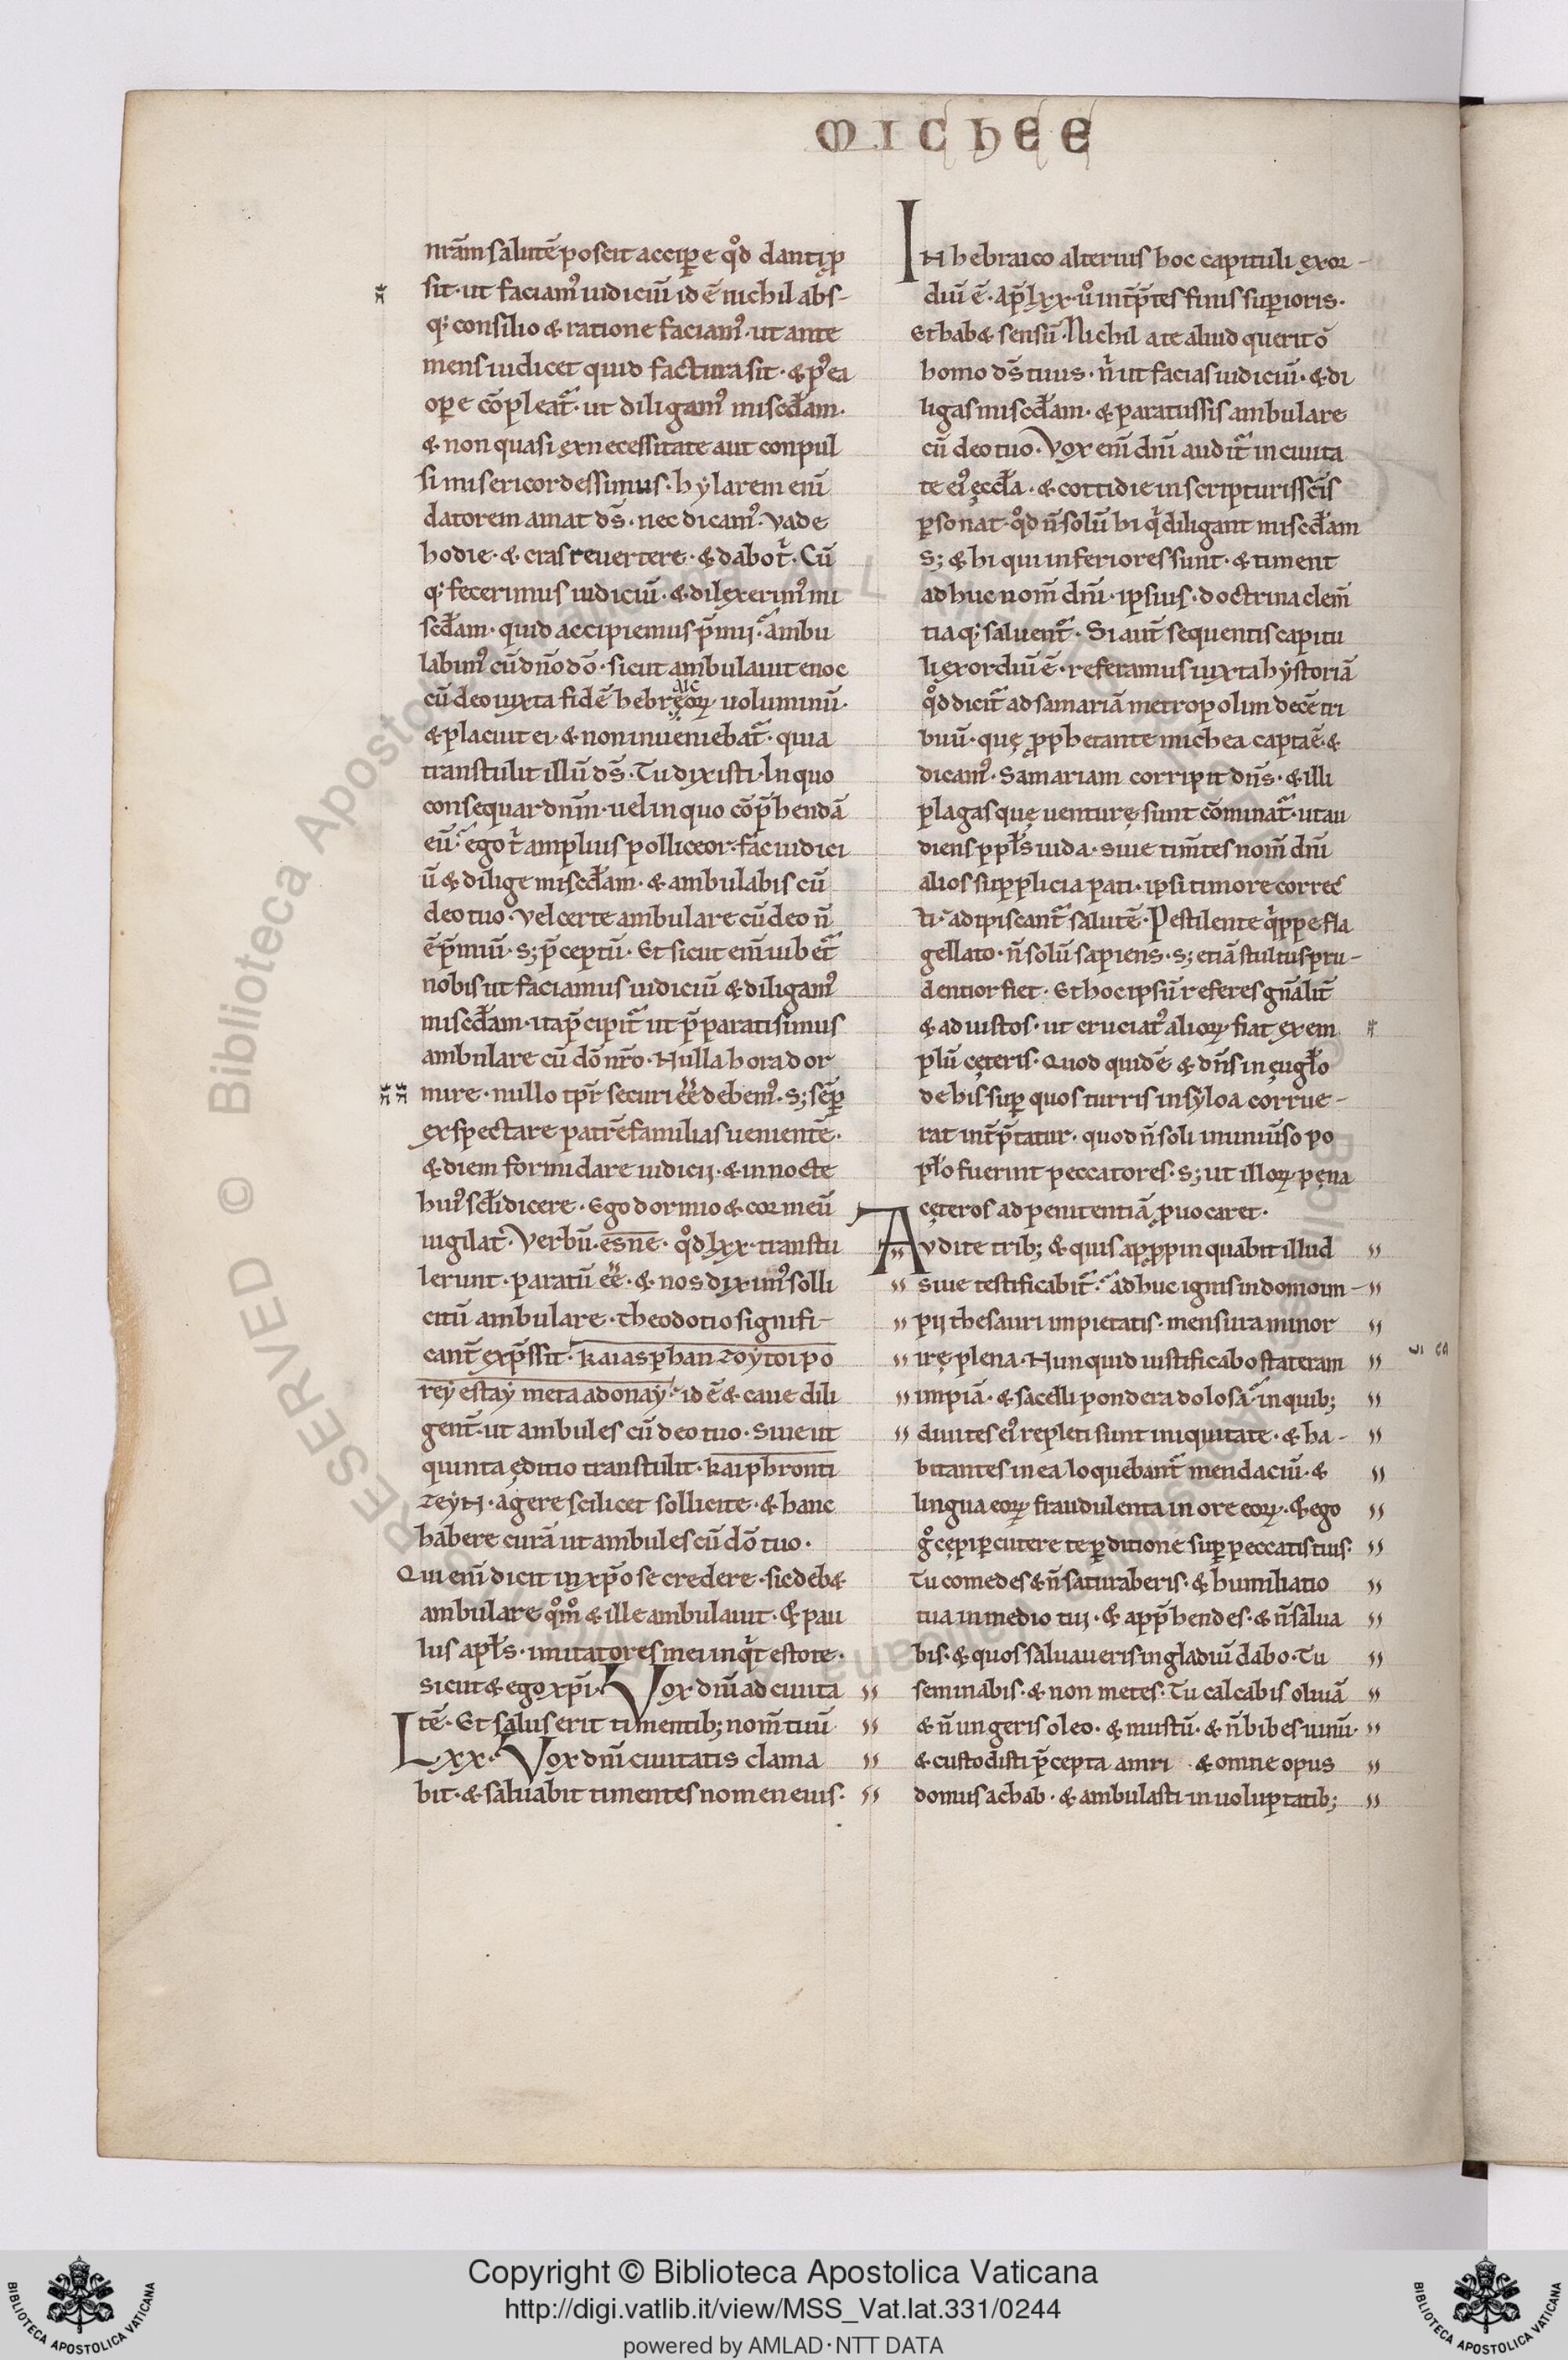 MICHEE
nr̄am salutē poscit accip̲e qd̊ danti p̲
sit· ut faciam᷒ iudiciū id ē nichil abs-
q; consilio & ratione faciam᷒· ut ante
mens iudicet quid factura sit· & p᷒ ea
op̲e cōpleat᷑· ut diligam᷒ miscd̄am·
& non quasi ex necessitate aut conpul
si misericordes simus· hylarem eni̅
datorem amat ds̄· nec dicam᷒· vade
hodie· & cras revertere· & dabo t'· Cū
q; fecerimus iudiciū· & dilexerim᷒ mi
scd̄am· quid accipiemus p̄mij᷑ ambu
labim᷒ cū dn̄o dō· sicut ambulavit enoc
cū deo iuxta fidē hebreoꝝ uoluminū·
& placuit ei· & non inueniebat᷑· quia
transtulit illū ds̄· Tu dixisti· In quo
consequar dnm̄· uel in quo cōp̄hendā
eū᷑ ego t' amplius polliceor· fac iudici
ū & dilige miscd̄am· & ambulabis cū
deo tuo· Vel certe ambulare cū deo n̄
ē p̄miū· s; p̄ceptū· Et sicut eni̅ iubet᷑
nobis ut faciamus iudiciū & diligam᷒
miscd̄am· ita p̄cipit᷑ ut p̄parati simus
ambulare cū dō nr̄o· Nulla hora dor
mire· nullo tpr̄ securi ee̅ debem᷒· s; sēp̲
exspectare patrēfamilias uenientē·
& diem formidare iudicij· & in nocte
hui᷒ scl̄i dicere· Ego dormio & cor meū
uigilat̄· Verbū· esne̅· qd̊ lxx· transtu
lerunt· paratū ee̅· & nos diximus solli
citū ambulare· theodotio signifi-
cant̄ exp̄ssit· kai asphan zoy toi po
rey estay meta adonay᷑ id ē & caue dili
gent̄· ut ambules cū deo tuo· Siue ut
quinta editio transtulit· kai phronti
zeyN· agere scilicet sollicite· & hanc
habere curā ut ambules cū dō tuo·
Qui eni̅ dicit in xp̄o se credere· sic deb&
ambulare qm̊ & ille ambulauit· & pau
lus apl̄s· imitatores mei inq't estote·
sicut & ego xp̄i· Vox dni̅ ad ciuita
tē· Et salus erit timentib; nom̄ tuū
Lxx· Vox dni̅ ciuitatis clama
bit· & saluabit timentes nomen eius·
IN hebraico alterius hoc capituli exor-
diū ē· Ap̄ lxx· ů int̄p̄tes finis sup̲ioris·
Et hab& sensū· Nichil a te aliud querit ō
homo ds̄ tuus· n' ut facias iudiciū· & di
ligas miscd̄am· & paratus sis ambulare
cū deo tuo· Vox eni̅ dni̅ audit᷑ in ciuita
te ei᷒ eccl̄a· & cottidie in scripturis scīs
p̲sonat· qd̊ n̄ solū hi q' diligant miscd̄am
s; & hi qui inferiores sunt· & timent
adhuc nom̄ dni̅· ipsius· doctrina clem̄
tiaq; saluent᷑· Si aut̄ sequentis capitu
li exordiū ē· referamus iuxta hystoriā
qd̊ dicit᷑ ad samariā metropolim decē tri
buū· quę pp̲hetante michea capta ē· &
dicam᷒· Samariam corripit dn̄s· & illi
plagas quę venturę sunt cōminat᷑· ut au
diens ppl̄s iuda· siue tim̄tes nom̄ dni̅
alios supplicia pati· ipsi timore correc
ti᷑ adipiscant᷑ salutē· Pestilente q'ppe fla
gellato· n̄ solū sapiens· s; etiā stultus pru-
dentior fiet· Et hoc ipsū referes gn̄alit̄
& ad iustos· ut cruciat᷒ alioꝝ fiat exem
plū cęteris· Quod quidē & dn̄s in eugl̄o
de his sup̲ quos turris in syloa corrue-
rat int̄p̄tatur· quod n̄ soli in uniūso po
pl̄o fuerint peccatores· s; ut illoꝝ pęna
cęteros ad penitentiā p̲uocaret·
Avdite trib; & quis app̲pinquabit illud
siue testificabit᷑·᷑ adhuc ignis in domo im-
pij thesauri impietatis· mensura minor
irę plena· Nunquid iustificabo stateram
impiā· & sacelli pondera dolosa᷑ in quib;
diuites ei᷒ repleti sunt iniquitate· & ha-
bitantes in ea loquebant᷑ mendaciū· &
lingua eoꝝ fraudulenta in ore eoꝝ· & ego
g̊ cępi p̲cutere te p̲ditione sup̲ peccatis tuis·
Tu comedes & n̄ saturaberis· & humiliatio
tua in medio tui· & app̄hendes· & n̄ salua
bis· & quos saluaueris in gladiū dabo· Tu
seminabis· & non metes· Tu calcabis oliuā
& n̄ ungeris oleo· & mustū· & n̄ bibes uinū·
& custodisti p̄cepta amri · & omne opus
domus achab· & ambulasti in uoluptatib;
RESERVED © Biblioteca Apostolica Vaticana
Copyright © Biblioteca Apostolica Vaticana
http://digi.vatlib.it/view/MSS_Vat.lat.331/0244
powered by AMLAD·NTT DATA
BIBLIOTECA APOSTOLICA VATICANA
BIBLIOTECA APOSTOLICA VATICANA